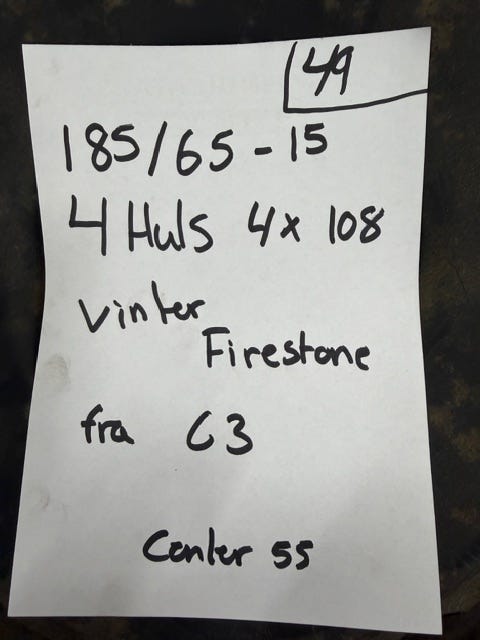 49
185/65-15
4 Huls 4x 108
Vinter
Firestone
fra C3
Center 55